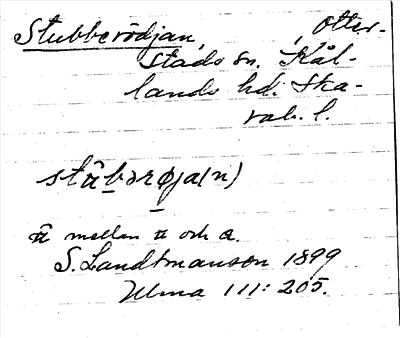 Stubberödjan, Otter-
stads sn. Kål-
lands hd. Ska-
rab. l.
stu̇̂bərøja(n)
û mellan u och a.
S. Landtmanson 1899
Ulma 111: 205.